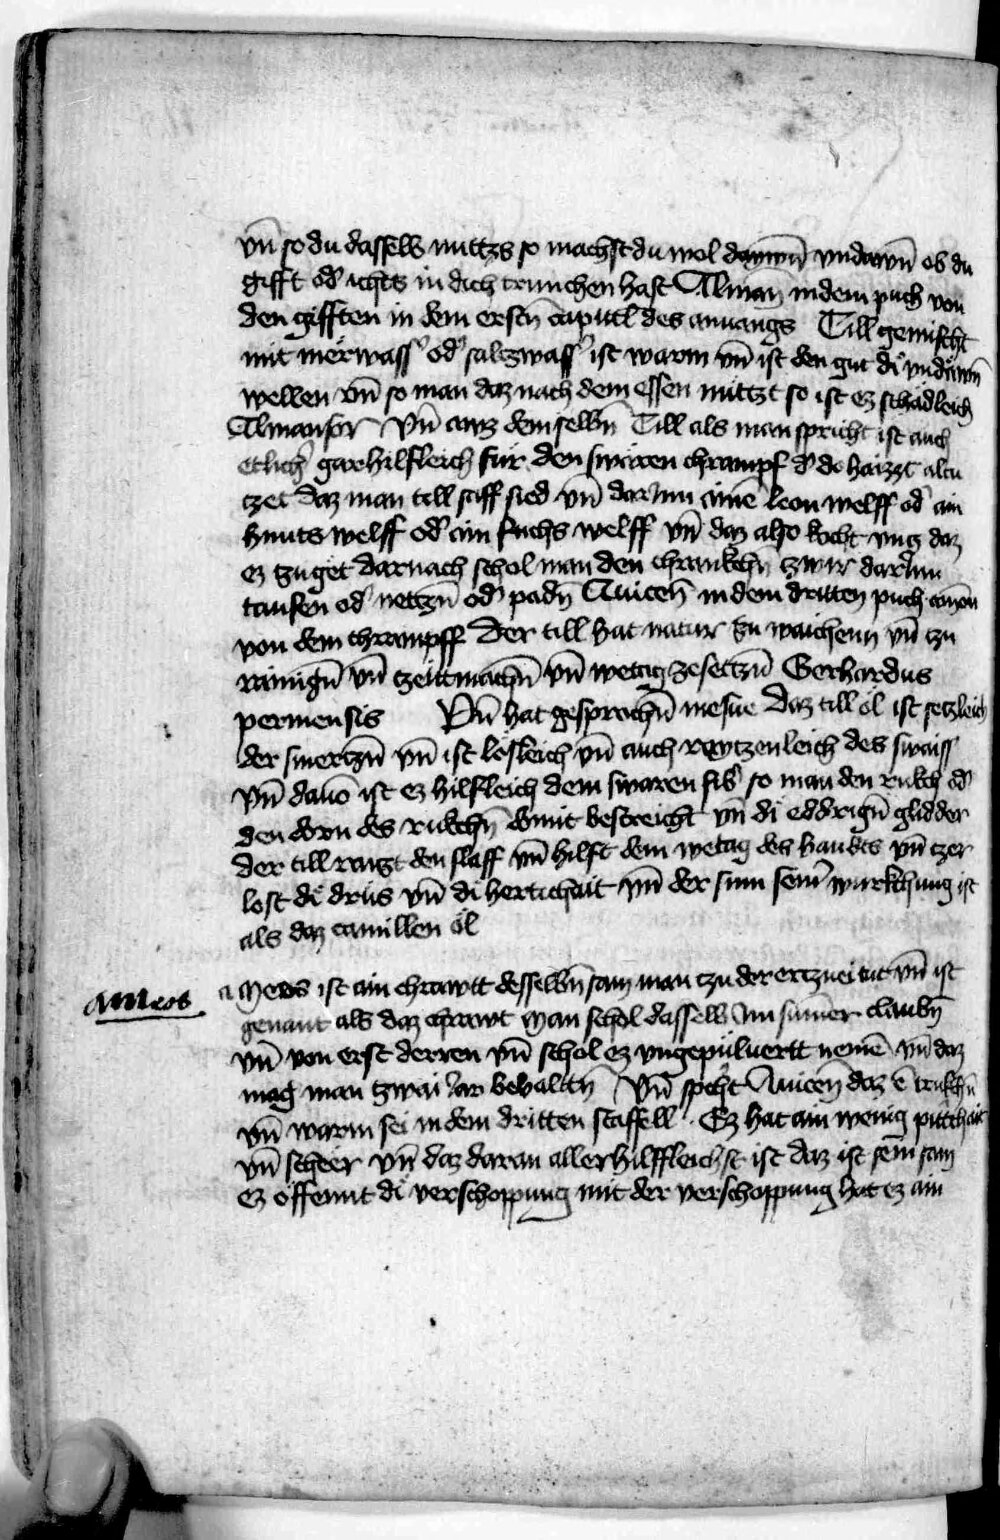 vn̄ so du dasselb nuttzs so machst du wol daywn̄ vndawn̄ ob du
gifft od ichts in dich trunchen hast Alman̄ in dem puch von
den gifften in dem erstn̄ caputl des anuangs Till gemischt
mit merwass od saltzwass ist warm vn̄ ist den gut di vndawn̄
wellen vn̄ so man daz nach dem essen nuttzt so ist ez schadleich
Almansor Vn̄ awz demselbn̄ Till als man spricht ist auch
etlich gar hilfleich fur den swaren chrampf d do haizzt altu
tzet daz man till saff sied vn̄ darinn ainē leon welff od ain
hunts welff od ain fuchs welff vn̄ daz also kocht vnz daz
ez zuget darnach schol man den chrankchn̄ zwir darinn
taufen od nettzn̄ od padn̄ Auicen̄ in dem dritten puch canon
von dem chrampff Der till hat natur zu waichenn vn̄ tzu
rainign̄ vn̄ tzeittmachn̄ vn̄ wetag zesetzn̄ Gerhardus
permensis Vn̄ hat gesprochn̄ mesue daz till ol ist setzleich
der smertzn̄ vn̄ ist losleich vn̄ auch raytzenleich des swaiss
vn̄ dauō ist ez hilfleich dem swaren fib so man den rukch od
den dorn des rukchn̄ domit bestreicht vn̄ di eddrign̄ glidder
der till raizt den slaff vn̄ hilft dem wetag des haubts vn̄ tzer
lost di drus vn̄ di hertichait vn̄ der sum seinr wurkchung ist
als daz camillen ol
Ameos
a Meos ist ain chrawtt desselbn̄ sam man tzu der ertznei tut vn̄ ist
genant als daz chrawt Man schol dasselb im sumer claubn̄
vn̄ von erst derren vn̄ schol ez vngepuluertt nemē vn̄ daz
mag man zwai iar behaltn̄ Vn̄ spcht Auicen̄ daz ē trukchn̄
vn̄ warm sei in dem dritten staffell Ez hat ain wenig pittchait
vn̄ scheer vn̄ daz daran aller hilffleichst ist daz ist sein sam
ez offennt di verschoppung mit der verschoppung hat ez ain